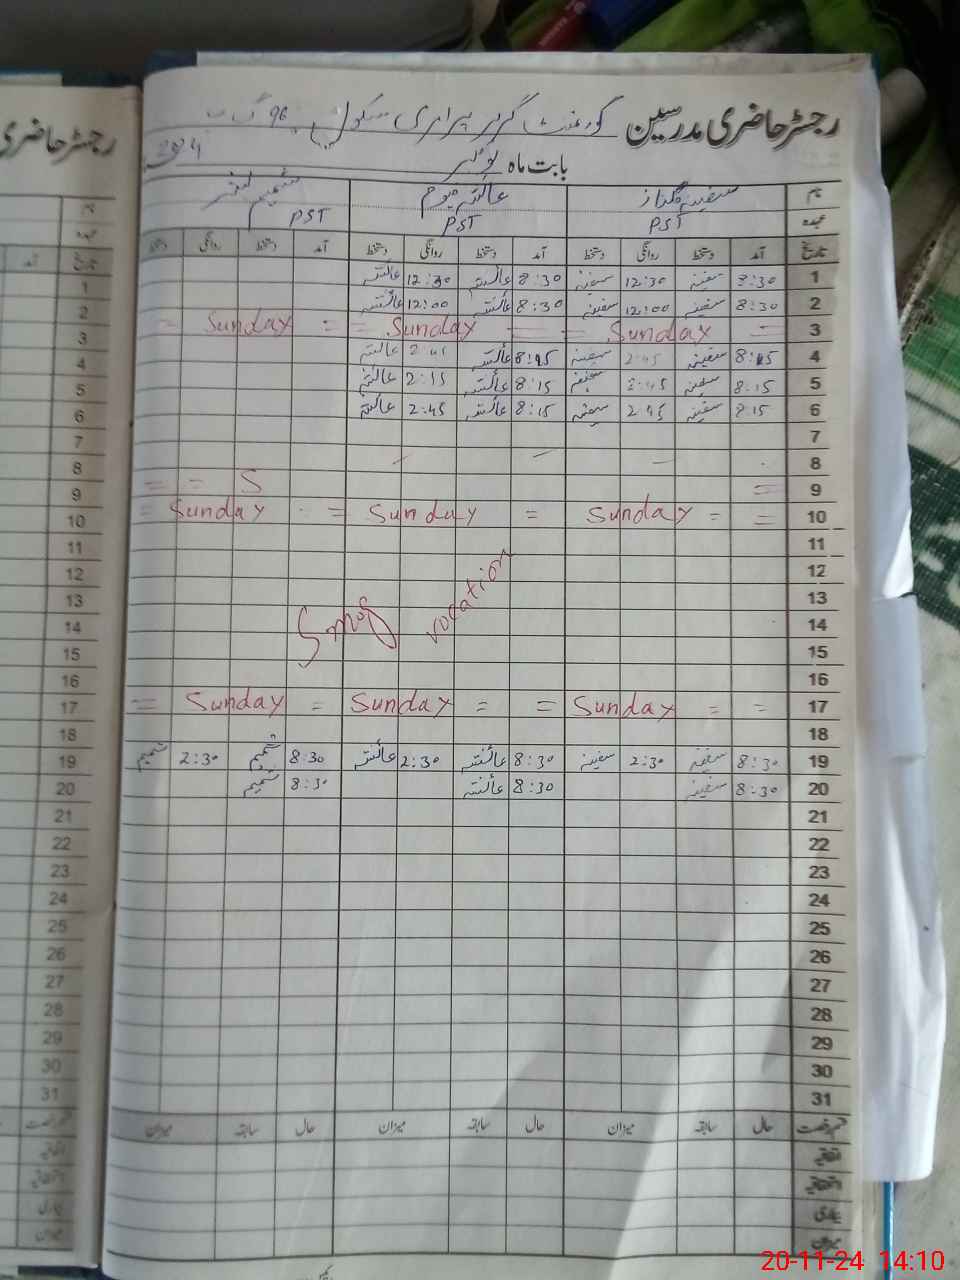 رجسٹر حاضری مدرسین گورنمنٹ گرلز پرائمری سکول 96 گ ب
بابت ماہ نومبر
نام سفینہ عائشہ شمیم
عہدہ PST PST PST
تاریخ آمد دستخط روانگی دستخط آمد دستخط روانگی دستخط آمد دستخط روانگی دستخط
1 8:30 سفینہ 12:30 سفینہ 8:30 عائشہ 12:30 عائشہ
2 8:30 سفینہ 12:00 سفینہ 8:30 عائشہ 12:00 عائشہ
3 = Sunday = = Sunday = = Sunday =
4 8:15 سفینہ 2:45 سفینہ 8:15 عائشہ عائشہ
5 8:15 سفینہ 2:45 سفینہ 8:15 عائشہ 2:15 عائشہ
6 8:15 سفینہ 2:45 سفینہ 8:15 عائشہ 2:45 عائشہ
7
8
9 = S = =
10 = = Sunday = Sunday = Sunday =
11
12
13
Smog vocation
14
15
16
17 = = Sunday = = Sunday = Sunday =
18
19 8:30 سفینہ 2:30 سفینہ 8:30 عائشہ 2:30 عائشہ 8:30 شمیم 2:30 شمیم
20 8:30 سفینہ 8:30 عائشہ 8:30 شمیم
21
22
23
24
25
26
27
28
29
30
31
قسم رخصت حال سابقہ میزان حال سابقہ میزان حال سابقہ میزان
اتفاقیہ
استحقاقیہ
بیماری
میزان
رجسٹر حاضری
نام
عہدہ
تاریخ آمد
1
2
3
4
5
6
7
8
9
10
11
12
13
14
15
16
17
18
19
20
21
22
23
24
25
26
27
28
29
30
31
قسم رخصت
اتفاقیہ
استحقاقیہ
بیماری
میزان
20-11-24 14:10